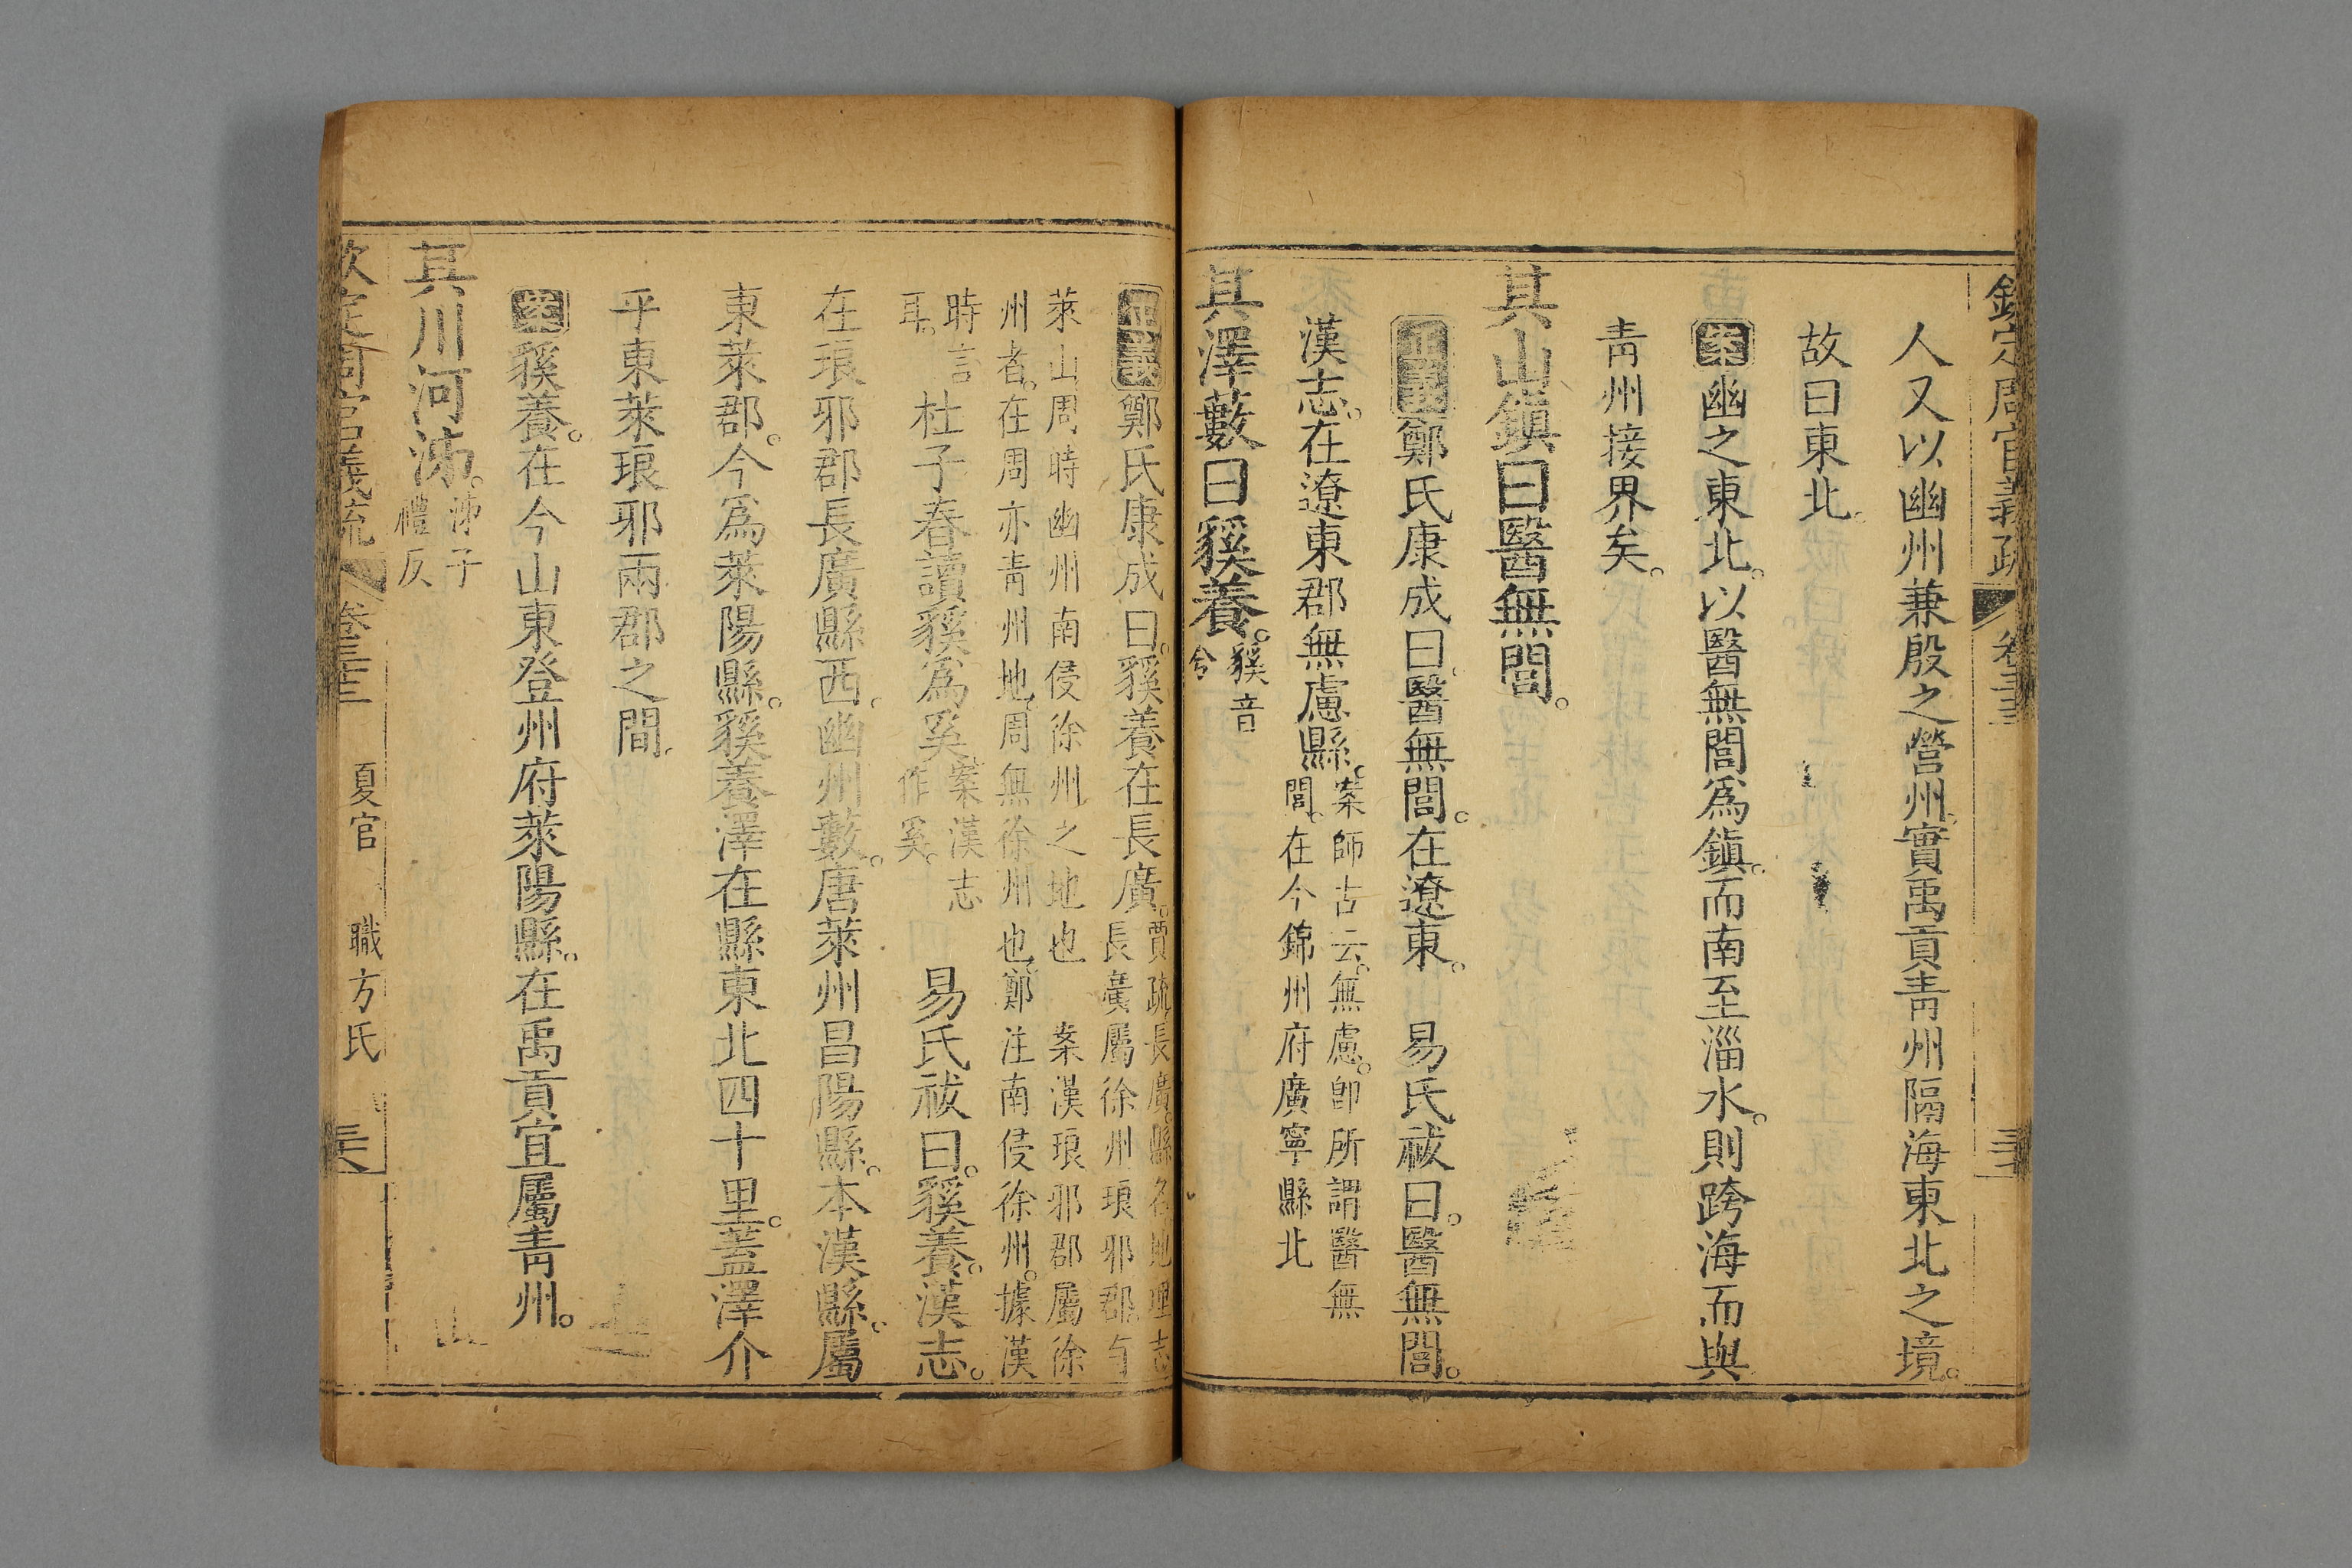 欽定周官義疏 卷三十三
人又以幽州兼殷之營州實禹貢青州隔海東北之境
故曰東北
案幽之東北以醫無閭爲鎭而南至淄水則跨海而與
青州接界矣
其山鎭曰醫無閭
正義鄭氏康成曰醫無閭在遼東 易氏祓曰醫無閭
漢志在遼東郡無慮縣案師古云無慮卽所謂醫無
閭在今錦州府廣寧縣北
其澤藪曰貕養貕音
兮
正義鄭氏康成曰貕養在長廣賈疏長廣縣名地理志
長廣屬徐州琅邪郡有
萊山周時幽州南侵徐州之地也 案漢琅邪郡屬徐
州者在周亦青州地周無徐州也鄭注南侵徐州據漢
時言
耳 杜子春讀貕爲奚案漢志
作奚 易氏祓曰貕養漢志
在琅邪郡長廣縣西幽州藪唐萊州昌陽縣本漢縣屬
東萊郡今爲萊陽縣貕養澤在縣東北四十里蓋澤介
乎東萊琅邪兩郡之間
案貕養在今山東登州府萊陽縣在禹貢宜屬青州
其川河泲泲子
禮反
欽定周官義疏 卷三十三 夏官 職方氏